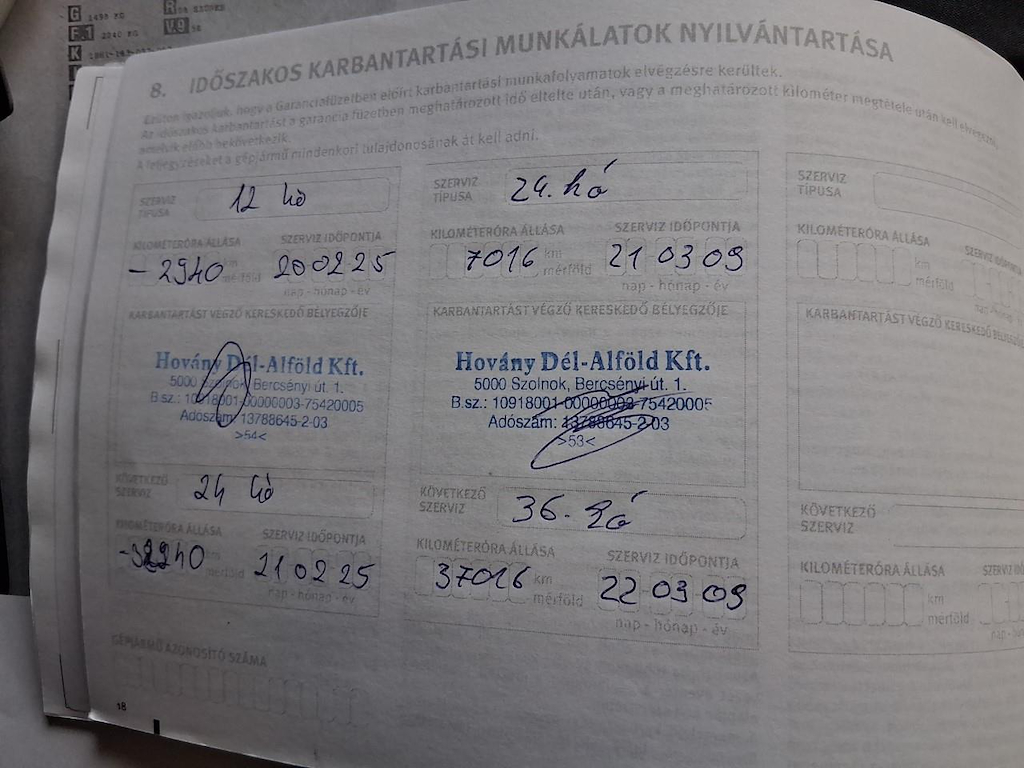 G 1430 KG
F.1 2240 KG
K
R
V.9
8. IDŐSZAKOS KARBANTARTÁSI MUNKÁLATOK NYILVÁNTARTÁSA
Ezúton igazoljuk, hogy a Garanciafüzetben előírt karbantartási munkafolyamatok elvégzésre kerültek.
Az időszakos karbantartást a garancia füzetben meghatározott idő eltelte után, vagy a meghatározott kilométer megtétele után kell elvégezni,
amelyik előbb bekövetkezik.
A feljegyzéseket a gépjármű mindenkori tulajdonosának át kell adni.
SZERVIZ TÍPUSA 12 hó
KILOMÉTERÓRA ÁLLÁSA SZERVIZ IDŐPONTJA
- 2940 km mérföld 20 02 25
nap - hónap - év
KARBANTARTÁST VÉGZŐ KERESKEDŐ BÉLYEGZŐJE
Hovány Dél-Alföld Kft.
5000 Szolnok, Bercsényi út. 1.
B.sz.: 10918001-00000003-75420005
Adószám: 13788645-2-03
>54<
KÖVETKEZŐ SZERVIZ 24 hó
KILOMÉTERÓRA ÁLLÁSA SZERVIZ IDŐPONTJA
-32940 mérföld 21 02 25
nap - hónap - év
GÉPJÁRMŰ AZONOSÍTÓ SZÁMA
18
SZERVIZ TÍPUSA 24. hó
KILOMÉTERÓRA ÁLLÁSA SZERVIZ IDŐPONTJA
7016 km mérföld 21 03 09
nap - hónap - év
KARBANTARTÁST VÉGZŐ KERESKEDŐ BÉLYEGZŐJE
Hovány Dél-Alföld Kft.
5000 Szolnok, Bercsényi út. 1.
B.sz.: 10918001-00000003-75420005
Adószám: 13788645-2-03
>53<
KÖVETKEZŐ SZERVIZ 36. hó
KILOMÉTERÓRA ÁLLÁSA SZERVIZ IDŐPONTJA
37016 km mérföld 22 03 09
nap - hónap - év
SZERVIZ TÍPUSA
KILOMÉTERÓRA ÁLLÁSA
km mérföld
KARBANTARTÁST VÉGZŐ KERESKEDŐ
KÖVETKEZŐ SZERVIZ
KILOMÉTERÓRA ÁLLÁSA
km mérföld